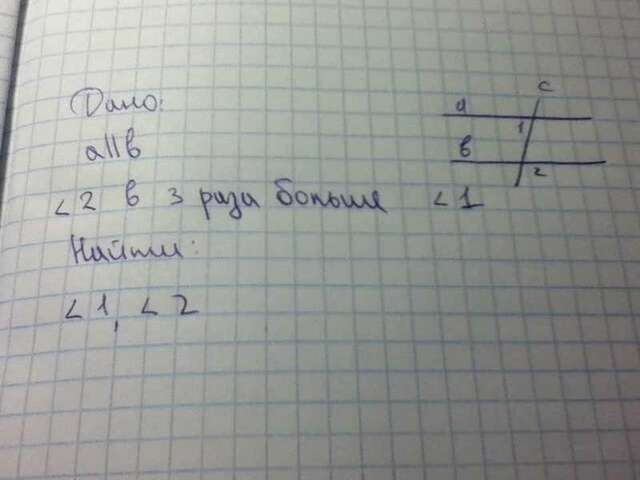 Дано:
a||в
<2 в 3 раза больше <1
Найти:
<1, <2
c
a
1
в
2